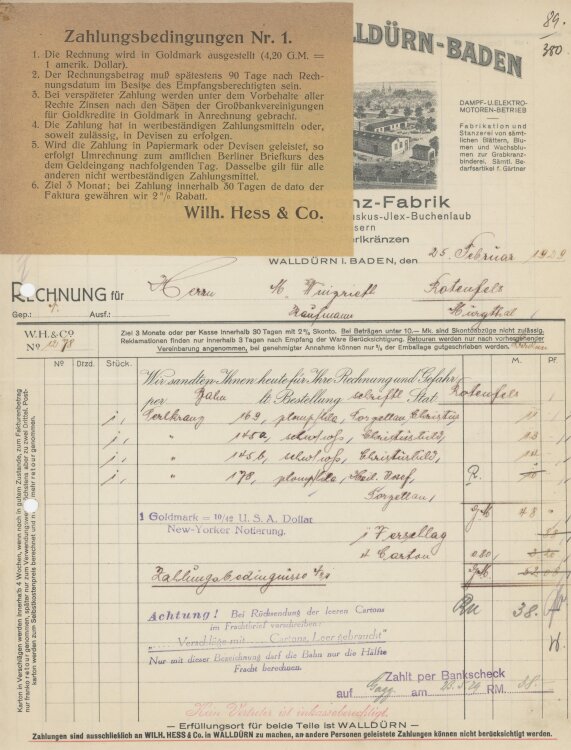 Zahlungsbedingungen Nr. 1.
1. Die Rechnung wird in Goldmark ausgestellt (4,20 G.M. =
1 amerik. Dollar).
2. Der Rechnungsbetrag muß spätestens 90 Tage nach Rech-
nungsdatum im Besitze des Empfangsberechtigten sein.
3. Bei verspäteter Zahlung werden unter dem Vorbehalte aller
Rechte Zinsen nach den Säzen der Großbankvereinigungen
für Goldkredite in Goldmark in Anrechnung gebracht.
4. Die Zahlung hat in wertbeständigen Zahlungsmitteln oder,
soweit zulässig, in Devisen zu erfolgen.
5. Wird die Zahlung in Papiermark oder Devisen geleistet, so
erfolgt Umrechnung zum amtlichen Berliner Briefkurs des
dem Geldeingang nachfolgenden Tag. Dasselbe gilt für alle
anderen nicht wertbeständigen Zahlungsmittel.
6. Ziel 3 Monat; bei Zahlung innerhalb 30 Tagen de dato der
Faktura gewähren wir 2% Rabatt.
Wilh. Hess & Co.
89.
380
WALLDÜRN-BADEN
DAMPF- U. ELEKTRO-
MOTOREN-BETRIEB
Fabrikation und
Stanzerei von sämt-
lichen Blättern, Blu-
men und Wachsblu-
men zur Grabkranz-
binderei. Sämtl. Be-
darfsartikel f. Gärtner
nz-Fabrik
uskus-Jlex-Buchenlaub
sern
erlkränzen
WALLDÜRN i. BADEN, den 25. Februar 1929
RECHNUNG für Herrn M. Rotenfels
Gep.: Ausf.: Kaufmann Murgthal
W.H. & Co
No 1278
Ziel 3 Monate oder per Kasse innerhalb 30 Tagen mit 2% Skonto. Bei Beträgen unter 10.— Mk. sind Skontoabzüge nicht zulässig.
Reklamationen finden nur innerhalb 3 Tagen nach Empfang der Ware Berücksichtigung. Retouren werden nur nach vorhergehender
Vereinbarung angenommen, bei genehmigter Annahme können nur % der Emballage gutgeschrieben werden.
No Dtzd. Stück. M. Pf.
Wir sandten Ihnen heute für Ihre Rechnung und Gefahr
per Bahn lt. Bestellung schriftl. Stat. Rotenfels
1, Perlkranz 169, Porzellan Christus 11
1, " 145a, schw/weiß, Christusbild, 13
1, " 145b, schw/weiß, Christusbild, 14
1, " 178, Heil. Josef, R. 10
Porzellan,
GM 48
1 Goldmark = 10/42 U. S. A. Dollar
New-Yorker Notierung.
1 Verschlag
4 Carton 0,80
Zahlungsbedingnisse GM
RM 38.
Achtung! Bei Rücksendung der leeren Cartons
im Frachtbrief vorschreiben:
„.... Verschläge mit .... Cartons, Leer gebraucht"
Nur mit dieser Bezeichnung darf die Bahn nur die Hälfte
Fracht berechnen.
Zahlt per Bankscheck
auf Gagg. am RM. 38.-
Kein Vertreter ist inkassoberechtigt.
— Erfüllungsort für beide Teile ist WALLDÜRN —
Zahlungen sind ausschließlich an WILH. HESS & Co. in WALLDÜRN zu machen, an andere Personen geleistete Zahlungen können nicht berücksichtigt werden.